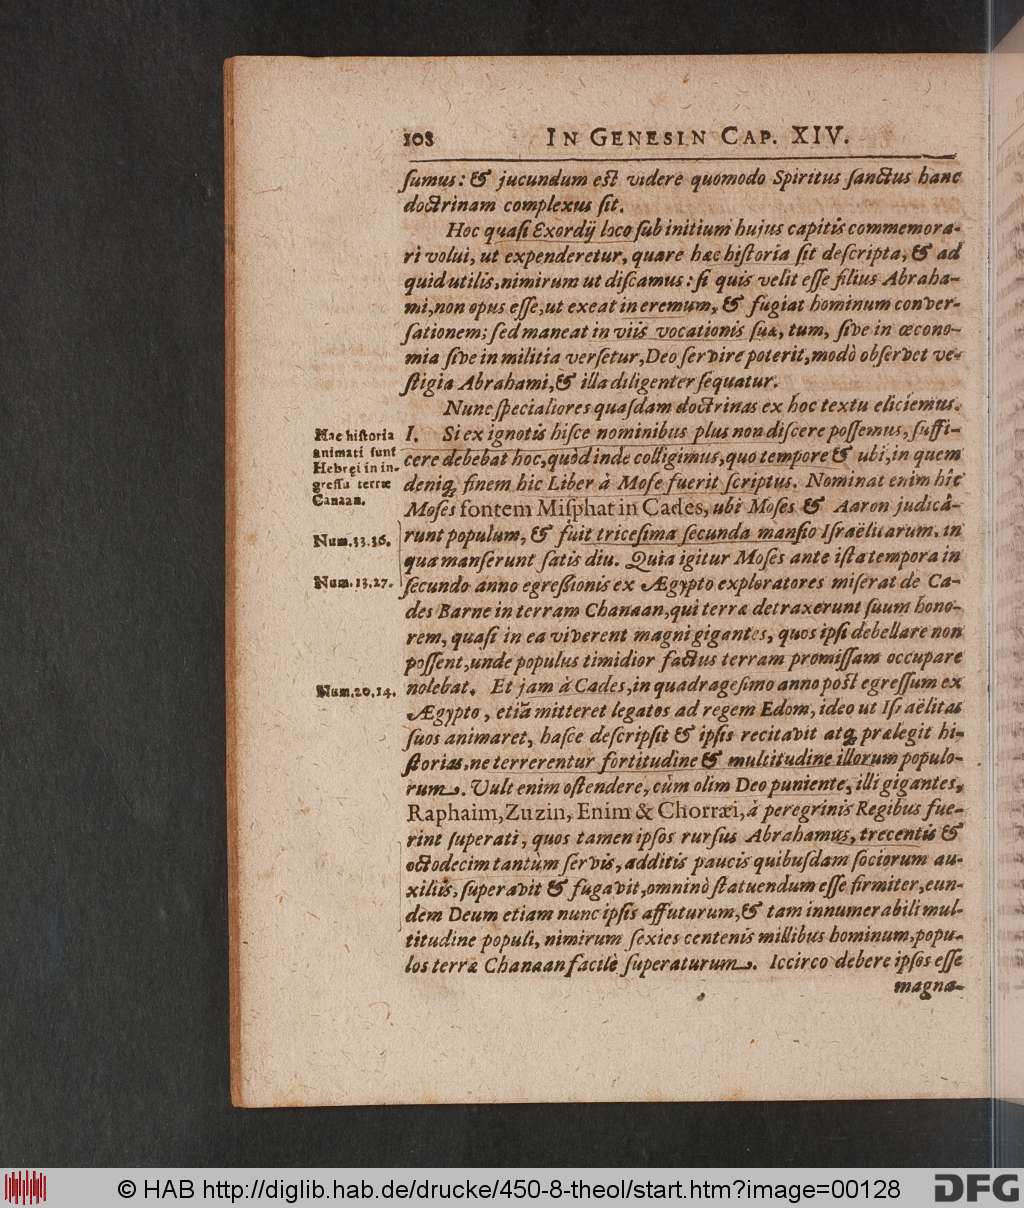 108 IN GENESIN CAP. XIV.
ſumus: & jucundum est videre quomodo Spiritus ſanctus hanc
doctrinam complexus ſit.
Hoc quaſi Exordij loco ſub initium hujus capitis commemora-
ri volui, ut expenderetur, quare hæc hiſtoria ſit deſcripta, & ad
quid utilis, nimirum ut diſcamus: ſi quis velit eſſe filius Abraha-
mi, non opus eſſe, ut exeat in eremum, & fugiat hominum conver-
ſationem; ſed maneat in viis vocationis ſuæ, tum, ſive in œcono-
mia ſive in militia verſetur, Deo ſervire poterit, modò obſervet ve-
ſtigia Abrahami, & illa diligenter ſequatur.
Nunc ſpecialiores quaſdam doctrinas ex hoc textu eliciemus.
Hæc hiſtoria
animati ſunt
Hebręi in in-
greſſu terræ
Canaan.
I. Si ex ignotis hiſce nominibus plus non diſcere poſſemus, ſuffi-
cere debebat hoc, quòd inde colligimus, quo tempore & ubi, in quem
deniq; finem hic Liber à Moſe fuerit ſcriptus. Nominat enim hîc
Moſes fontem Miſphat in Cades, ubi Moſes & Aaron judicâ-
Num.33.36.
runt populum, & fuit triceſima ſecunda manſio Iſraëlitarum, in
qua manſerunt ſatis diu. Quia igitur Moſes ante iſta tempora in
Num.13.27.
ſecundo anno egreſſionis ex Ægypto exploratores miſerat de Ca-
des Barne in terram Chanaan, qui terræ detraxerunt ſuum hono-
rem, quaſi in ea viverent magni gigantes, quos ipſi debellare non
poſſent, unde populus timidior factus terram promiſſam occupare
Num.20.14.
nolebat. Et jam à Cades, in quadrageſimo anno post egreſſum ex
Ægypto, etiã mitteret legatos ad regem Edom, ideo ut Iſraëlitas
ſuos animaret, haſce deſcripſit & ipſis recitavit atq; prælegit hi-
ſtorias, ne terrerentur fortitudine & multitudine illorum populo-
rum. Vult enim oſtendere, cùm olim Deo puniente, illi gigantes,
Raphaim, Zuzin, Enim & Chorræi, à peregrinis Regibus fue-
rint ſuperati, quos tamen ipſos rurſus Abrahamus, trecentis &
octodecim tantùm ſervis, additis paucis quibuſdam ſociorum au-
xiliis, ſuperavit & fugavit, omninò ſtatuendum eſſe firmiter, eun-
dem Deum etiam nunc ipſis affuturum, & tam innumerabili mul-
titudine populi, nimirum ſexies centenis millibus hominum, popu-
los terræ Chanaan facilè ſuperaturum. Iccirco debere ipſos eſſe
magna-
© HAB http://diglib.hab.de/drucke/450-8-theol/start.htm?image=00128
DFG